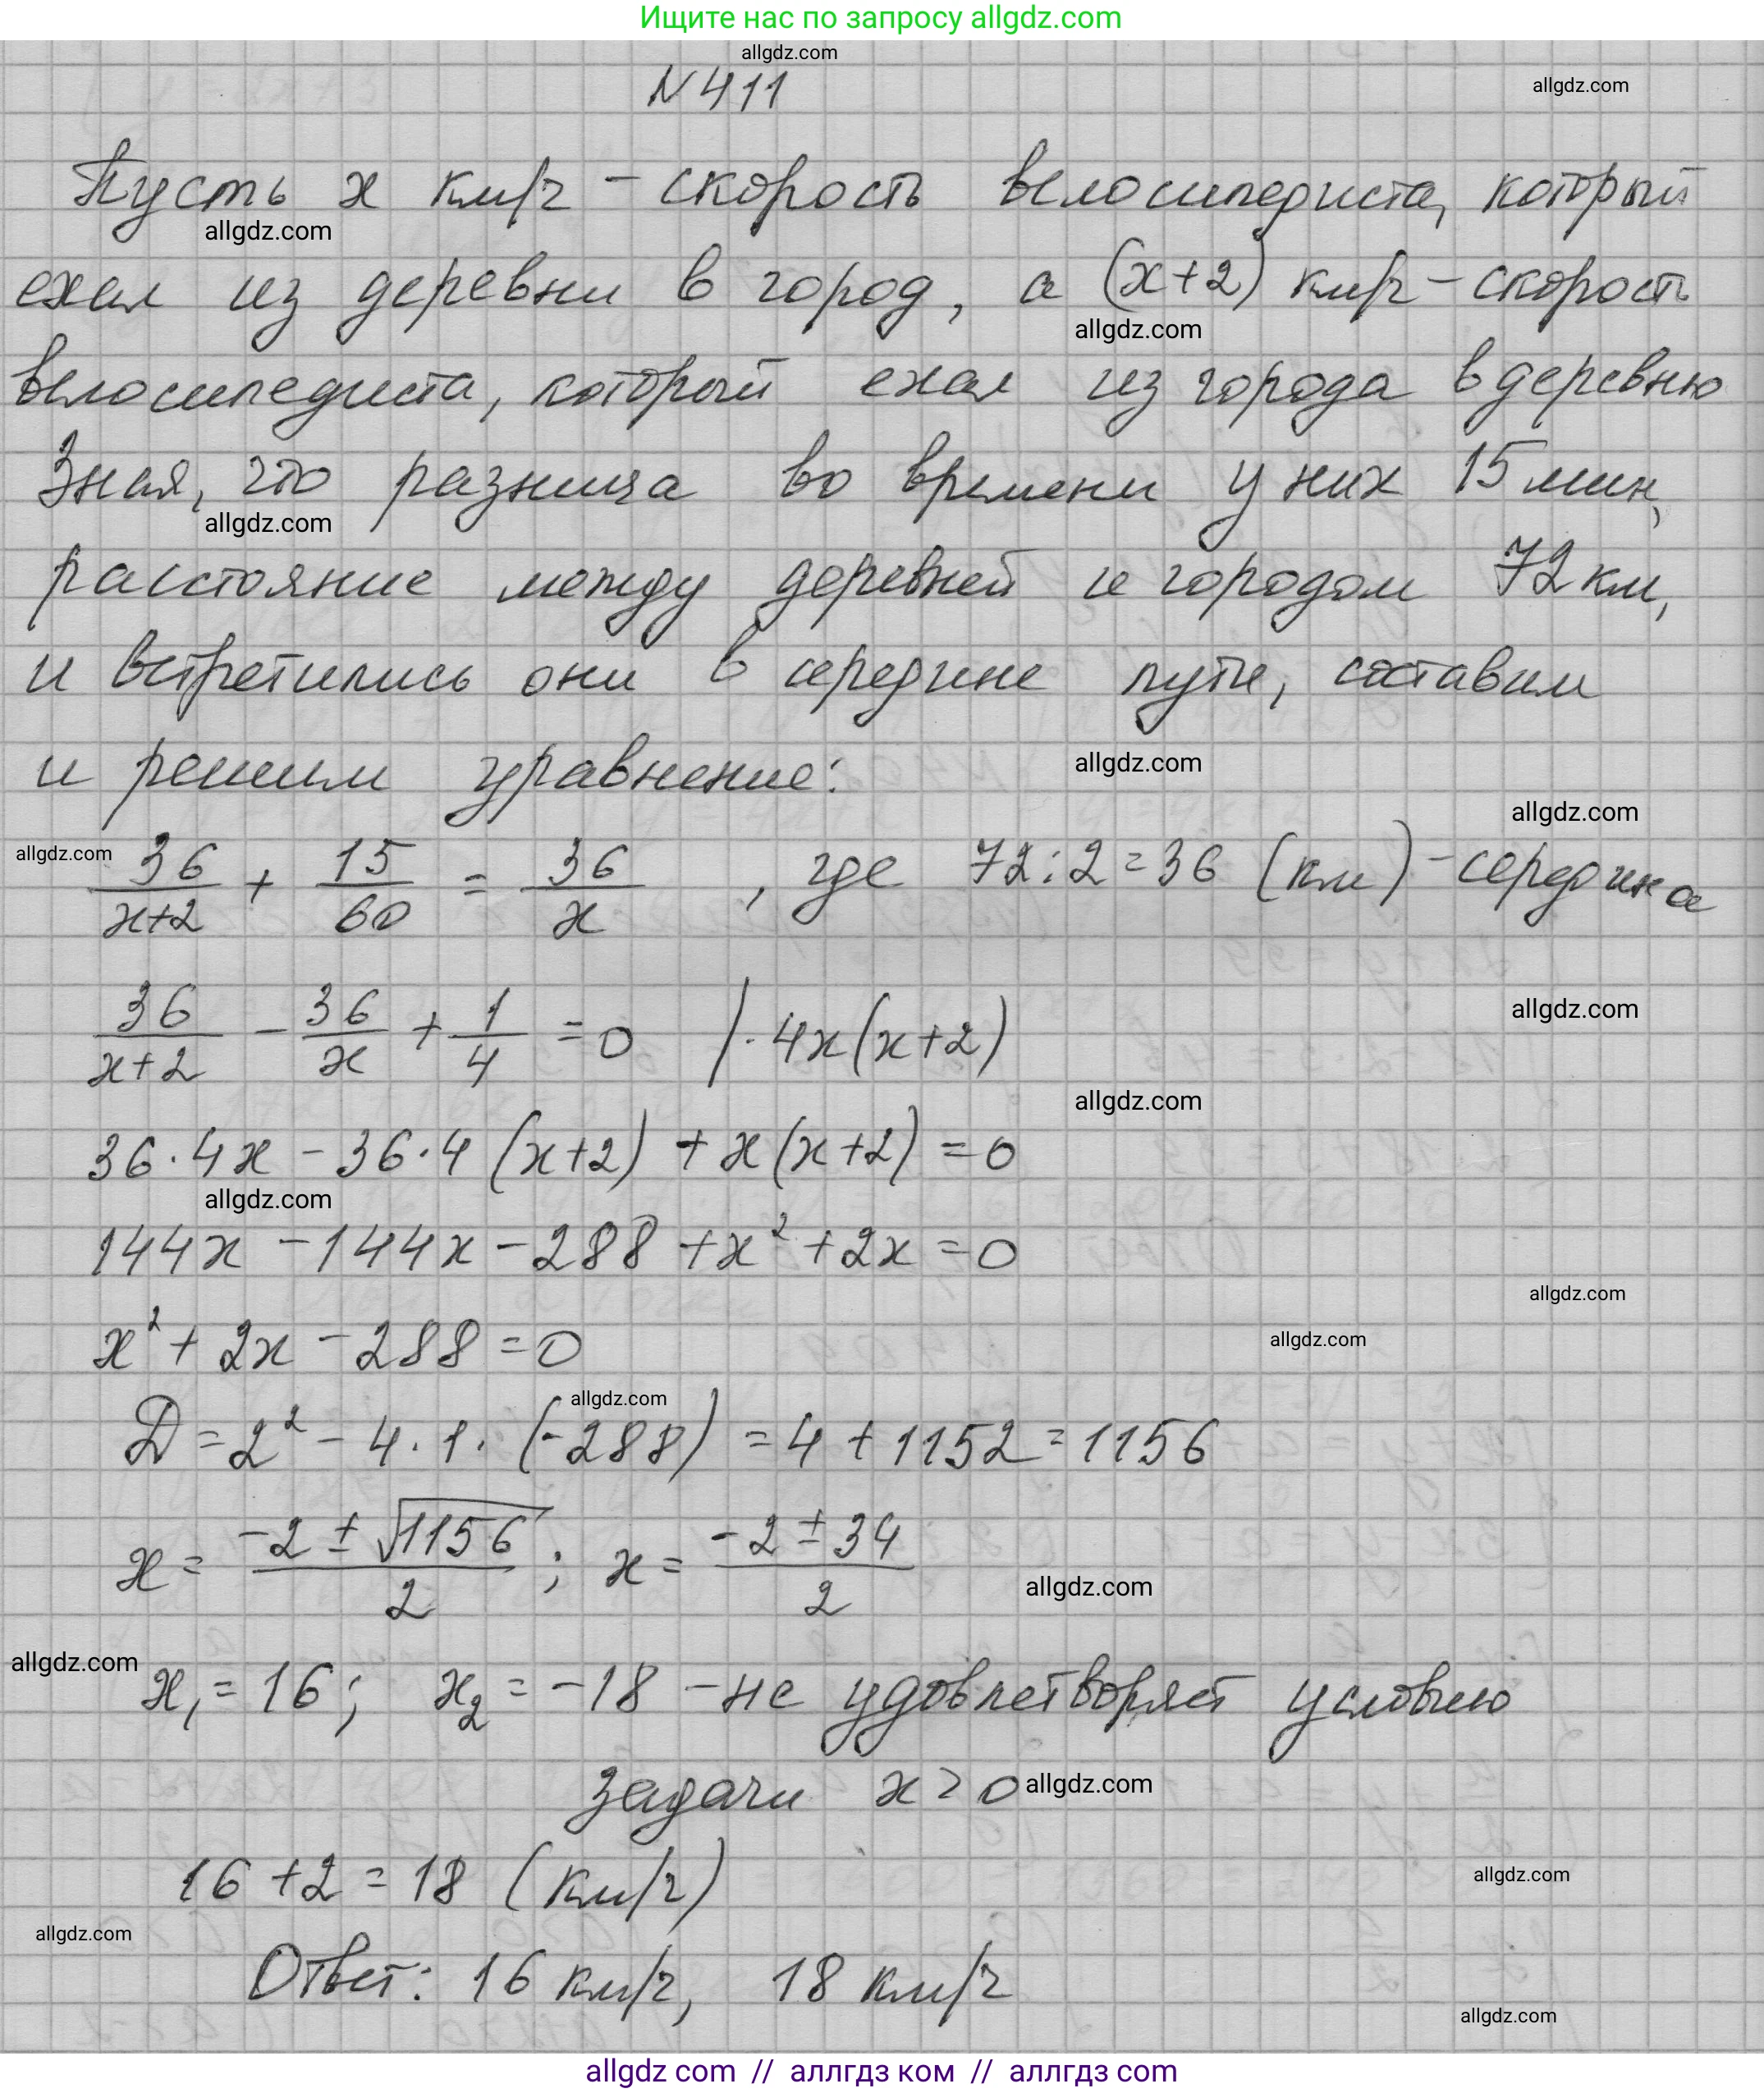 Ищите нас по запросу allgdz.com
allgdz.com
N 411
allgdz.com
Пусть x км/ч - скорость велосипедиста, который
allgdz.com
ехал из деревни в город, а (x+2) км/ч - скорость
allgdz.com
велосипедиста, который ехал из города в деревню
Зная, что разница во времени у них 15 мин,
allgdz.com
расстояние между деревней и городом 72 км,
и встретились они в середине пути, составим
и решим уравнение:
allgdz.com
allgdz.com
allgdz.com
36/(x+2) + 15/60 = 36/x , где 72:2=36 (км) - середина
36/(x+2) - 36/x + 1/4 = 0 /·4x(x+2)
allgdz.com
allgdz.com
36·4x - 36·4(x+2) + x(x+2) = 0
allgdz.com
144x - 144x - 288 + x² + 2x = 0
allgdz.com
allgdz.com
x² + 2x - 288 = 0
allgdz.com
Д = 2² - 4·1·(-288) = 4 + 1152 = 1156
x = (-2 ± √1156)/2 ; x = (-2 ± 34)/2
allgdz.com
allgdz.com
x₁ = 16; x₂ = -18 - не удовлетворяет условию
задачи x > 0
allgdz.com
16 + 2 = 18 (км/ч)
allgdz.com
allgdz.com
Ответ: 16 км/ч, 18 км/ч
allgdz.com
allgdz com // аллгдз ком // аллгдз com